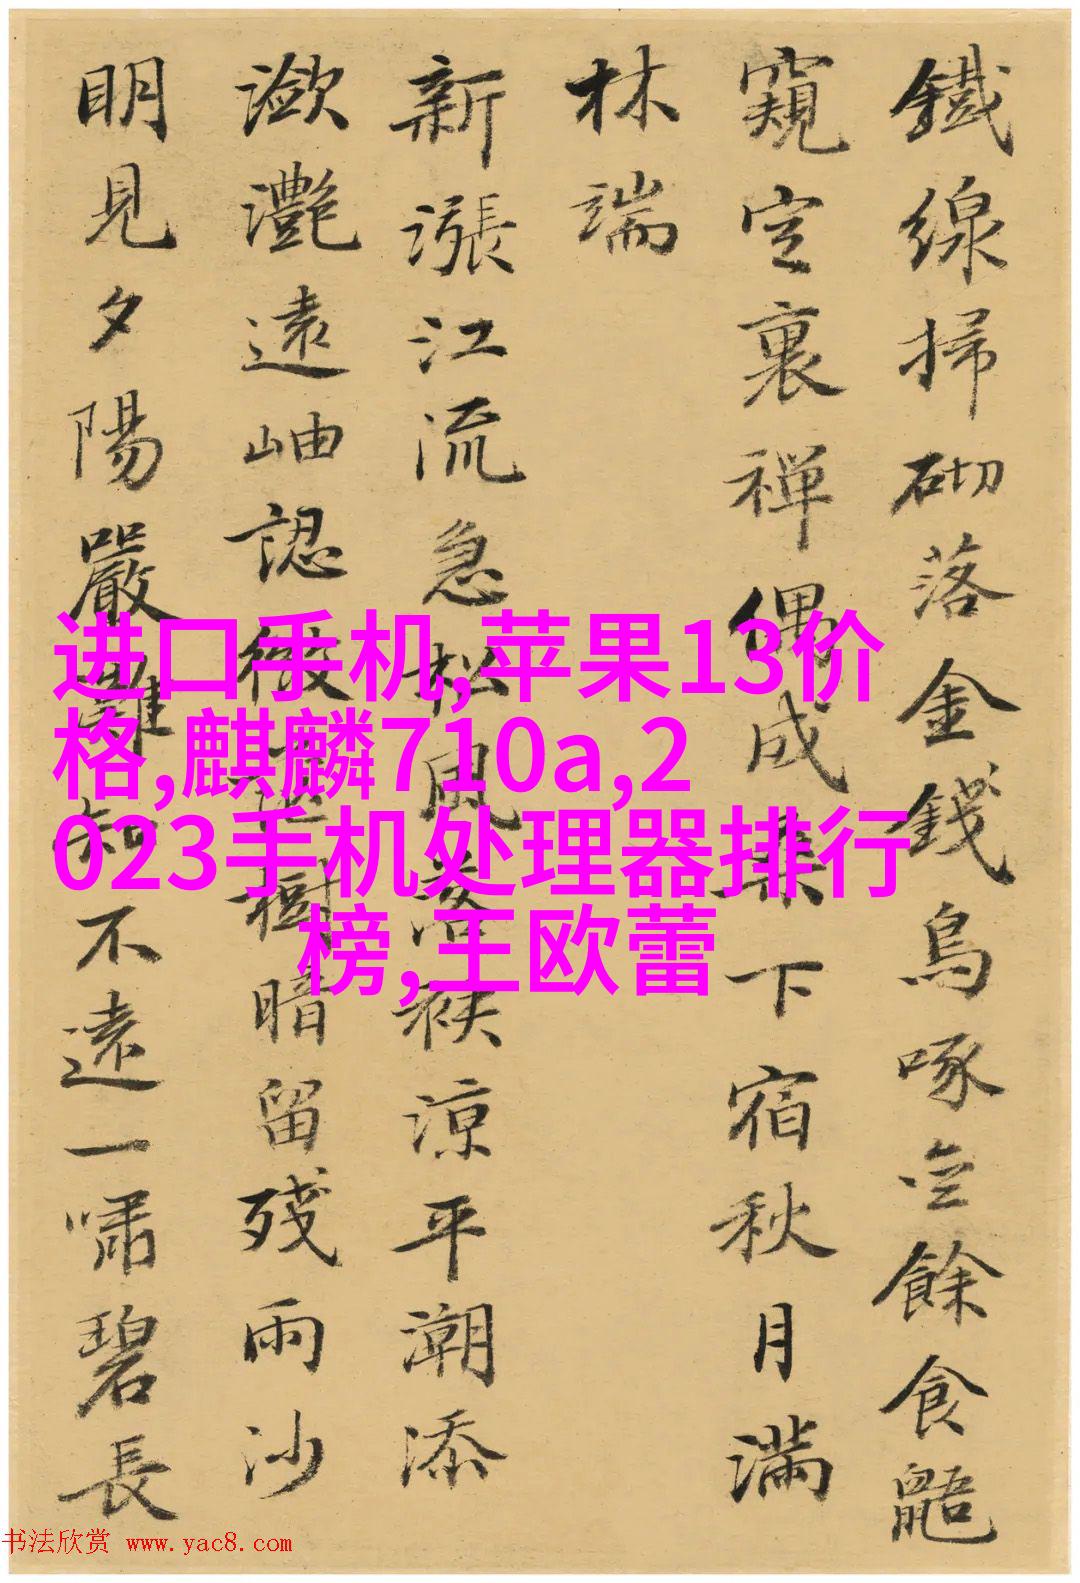 鐵線掃砌落金錢烏啄空餘食鼯
窺定裏禪偶成集下宿秋月滿
林端
新漲江流急松風落袂涼平潮添
瀲灧遠岫認微樹暗留殘雨沙
明見夕陽嚴灘知不遠一嘯碧長
进口手机,苹果13价
格,麒麟710a,2
023手机处理器排行
榜,王欧蕾
书法欣赏 www.yac8.com